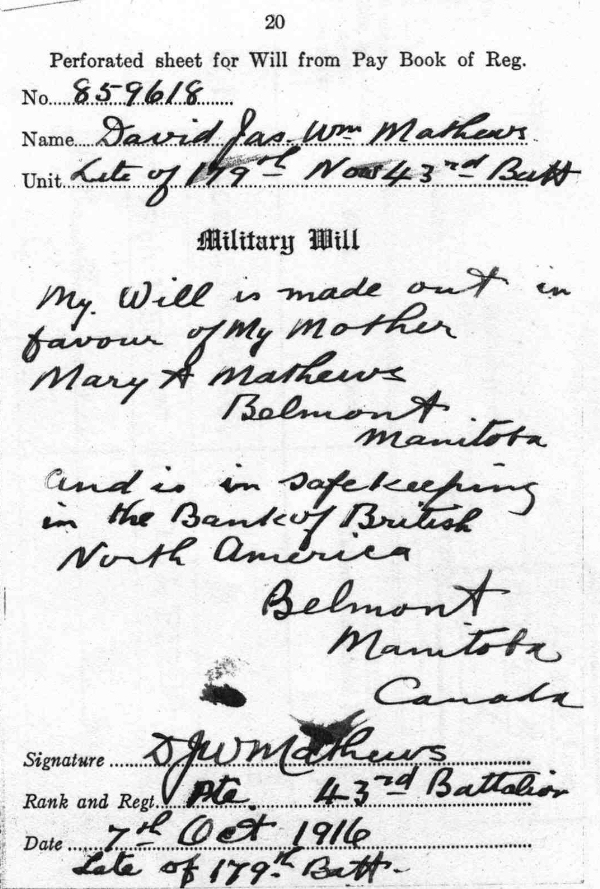 20
Perforated sheet for Will from Pay Book of Reg.
No. 859618
Name David Jas. Wm Mathews
Unit Late of 179th Now 43rd Batt
Military Will
My. Will is made out in
favour of My Mother
Mary A Mathews
Belmont
Manitoba
and is in safekeeping
in the Bank of British
North America
Belmont
Manitoba
Canada
Signature D J W Mathews
Rank and Regt. Pte. 43rd Battalion
Date 7th Oct 1916
Late of 179th Batt.